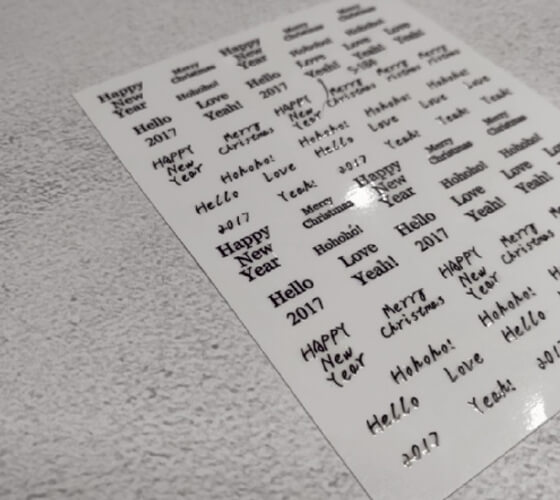 Happy New Year
Merry Christmas
Happy New Year
Merry Christmas
Merry Christmas
Hello 2017
Hohoho!
Love Yeah!
Hello 2017
Hohoho!
Love Yeah!
Hohoho!
Love Yeah!
HAPPY New Year
Merry Christmas
HAPPY New Year
Merry Christmas
Merry
Merry
Hello
Hohoho!
Love
Hohoho!
Hello
Hohoho!
Love
Hohoho!
Love
Love
2017
Yeah!
2017
Yeah!
Yeah!
Yeah!
Happy New Year
Merry Christmas
Happy New Year
Merry Christmas
Merry Christmas
Hello 2017
Hohoho!
Love Yeah!
Hello 2017
Hohoho!
Love Yeah!
Hohoho!
Love Yeah!
HAPPY New Year
Merry Christmas
HAPPY New Year
Merry Christmas
Hello
Hohoho!
Love
Hohoho!
Hello
2017
Yeah!